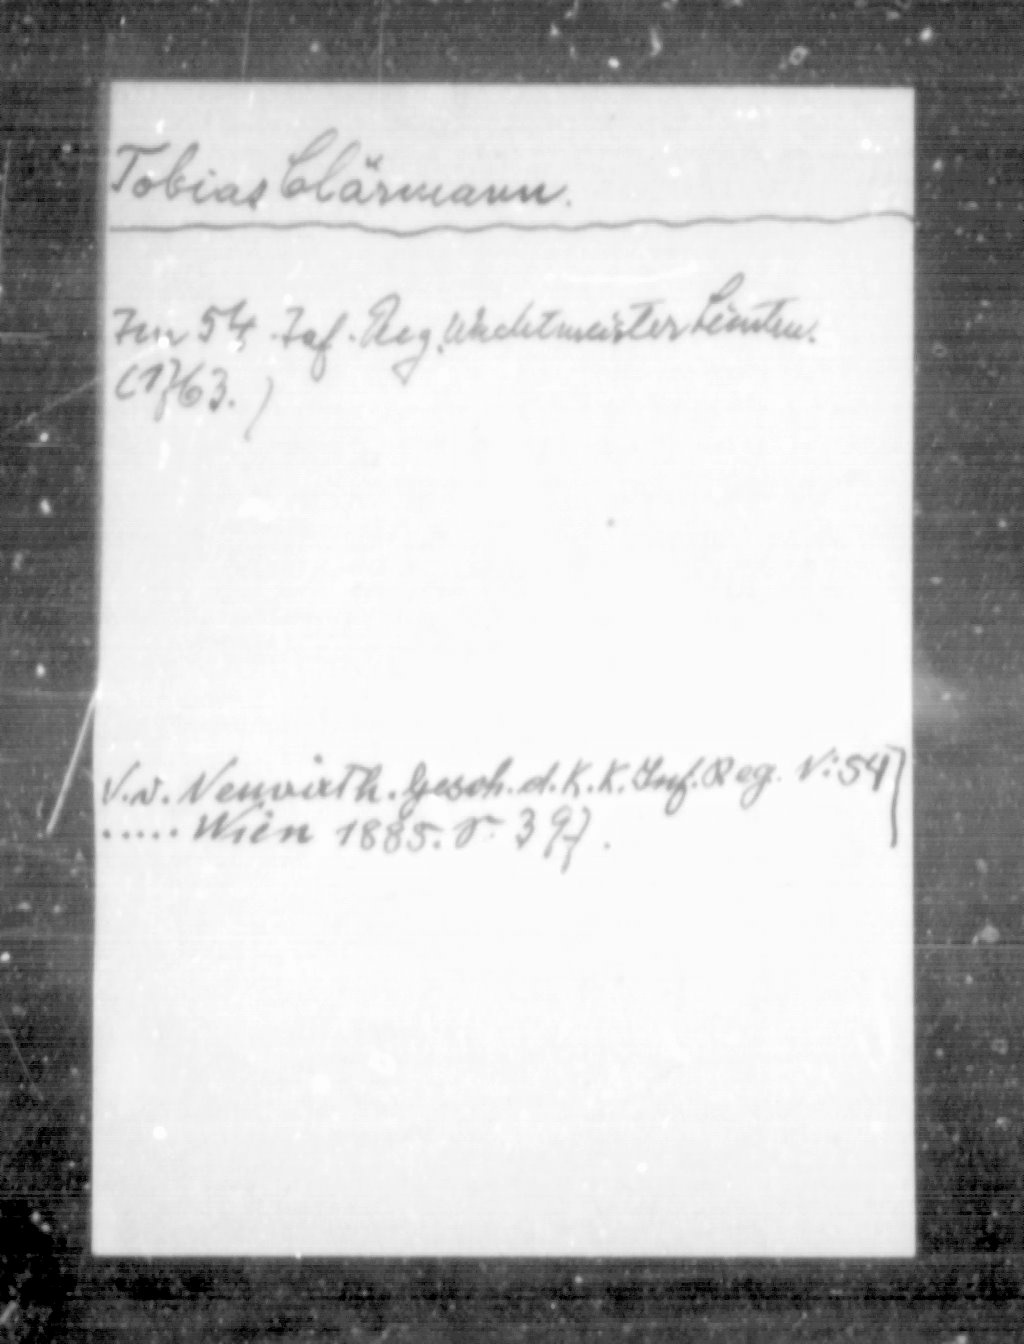 Tobias Clärmann.
Im 54. Inf. Reg. Wachtmeister Leintn.
(1763.)
V. v. Neuwirth. Gesch. d. K. K. Inf. Reg. N: 54
..... Wien 1885. S. 397.